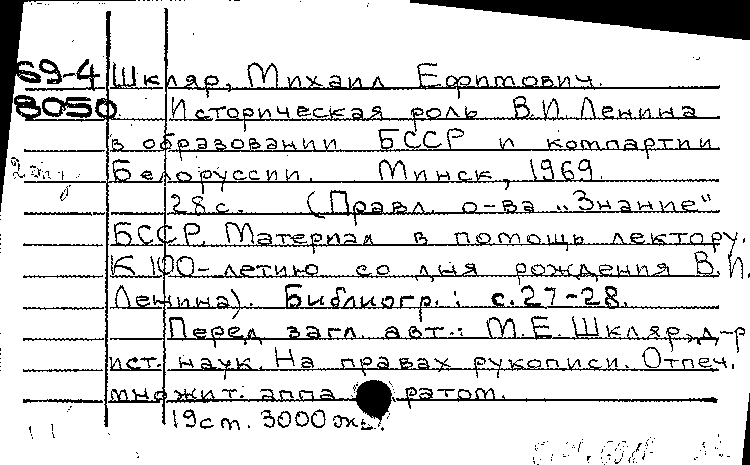 69-4 Шкляр, Михаил Ефимович.
8050 Историческая роль В.И. Ленина
в образовании БССР и компартии
Белоруссии. Минск, 1969.
28 с. (Правл. о-ва „Знание"
БССР. Материал в помощь лектору.
К 100-летию со дня рождения В.И.
Ленина). Библиогр.: с. 27-28.
Перед загл. авт.: М.Е. Шкляр, д-р
ист. наук. На правах рукописи. Отпеч.
множит. аппаратом.
19 см. 3000 экз.